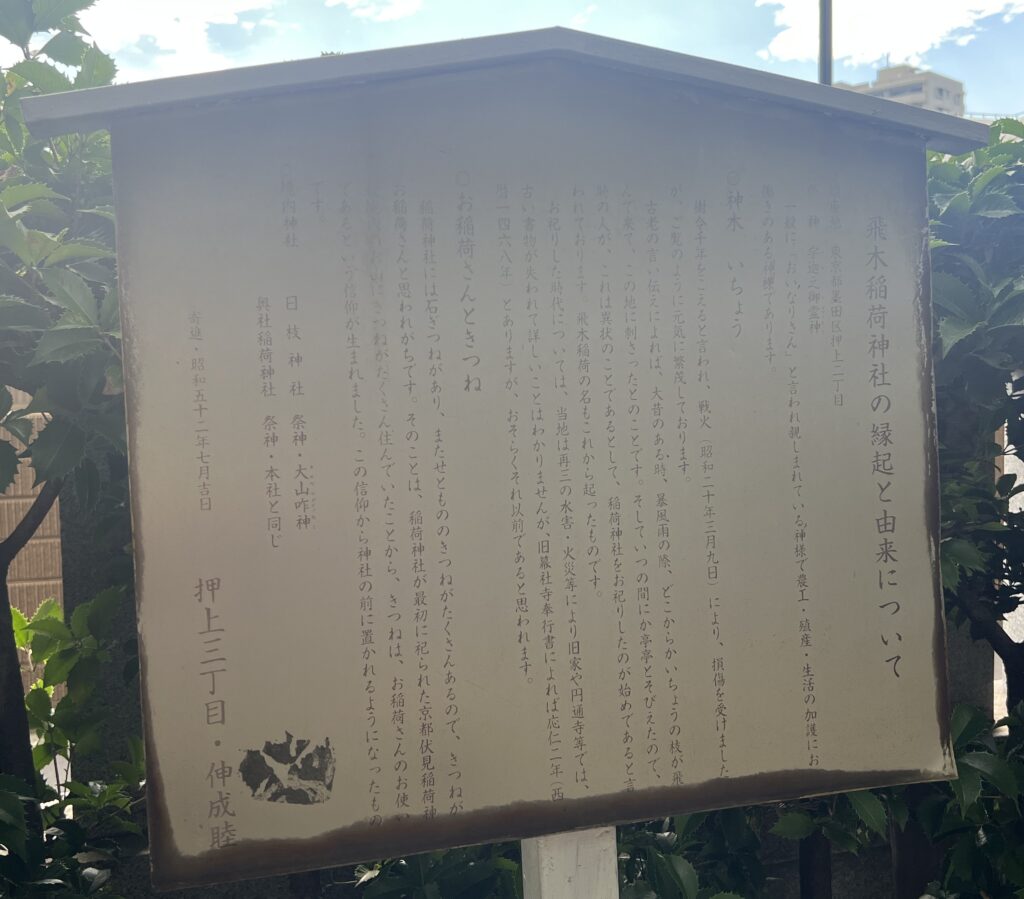 飛木稲荷神社の縁起と由来について
東京都墨田区押上二丁目
神 宇迦之御霊神
一般に「おいなりさん」と言われ親しまれている神様で農工・殖産・生活の加護にお
働きのある神様であります。
◎神木 いちょう
樹令千年をこえると言われ、戦火(昭和二十年三月九日)により、損傷を受けました
が、ご覧のように元気に繁茂しております。
古老の言い伝えによれば、大昔のある時、暴風雨の際、どこからかいちょうの枝が飛
んで来て、この地に刺さったとのことです。そしていつの間にか亭亭とそびえたので、
時の人が、これは異状のことであるとして、稲荷神社をお祀りしたのが始めであると言
われております。飛木稲荷の名もこれから起ったものです。
お祀りした時代については、当地は再三の水害・火災等により旧家や円通寺等では、
古い書物が失われて詳しいことはわかりませんが、旧幕社寺奉行書によれば応仁二年(西
暦一四六八年)とありますが、おそらくそれ以前であると思われます。
◎お稲荷さんときつね
稲荷神社には石きつねがあり、またせともののきつねがたくさんあるので、きつねが
お稲荷さんと思われがちです。そのことは、稲荷神社が最初に祀られた京都伏見稲荷神
きつねがたくさん住んでいたことから、きつねは、お稲荷さんのお使い
であるという信仰が生まれました。この信仰から神社の前に置かれるようになったもの
です。
境内神社 日枝神社 祭神・大山咋神
奥社稲荷神社 祭神・本社と同じ
寄進・昭和五十二年七月吉日
押上三丁目・伸成睦